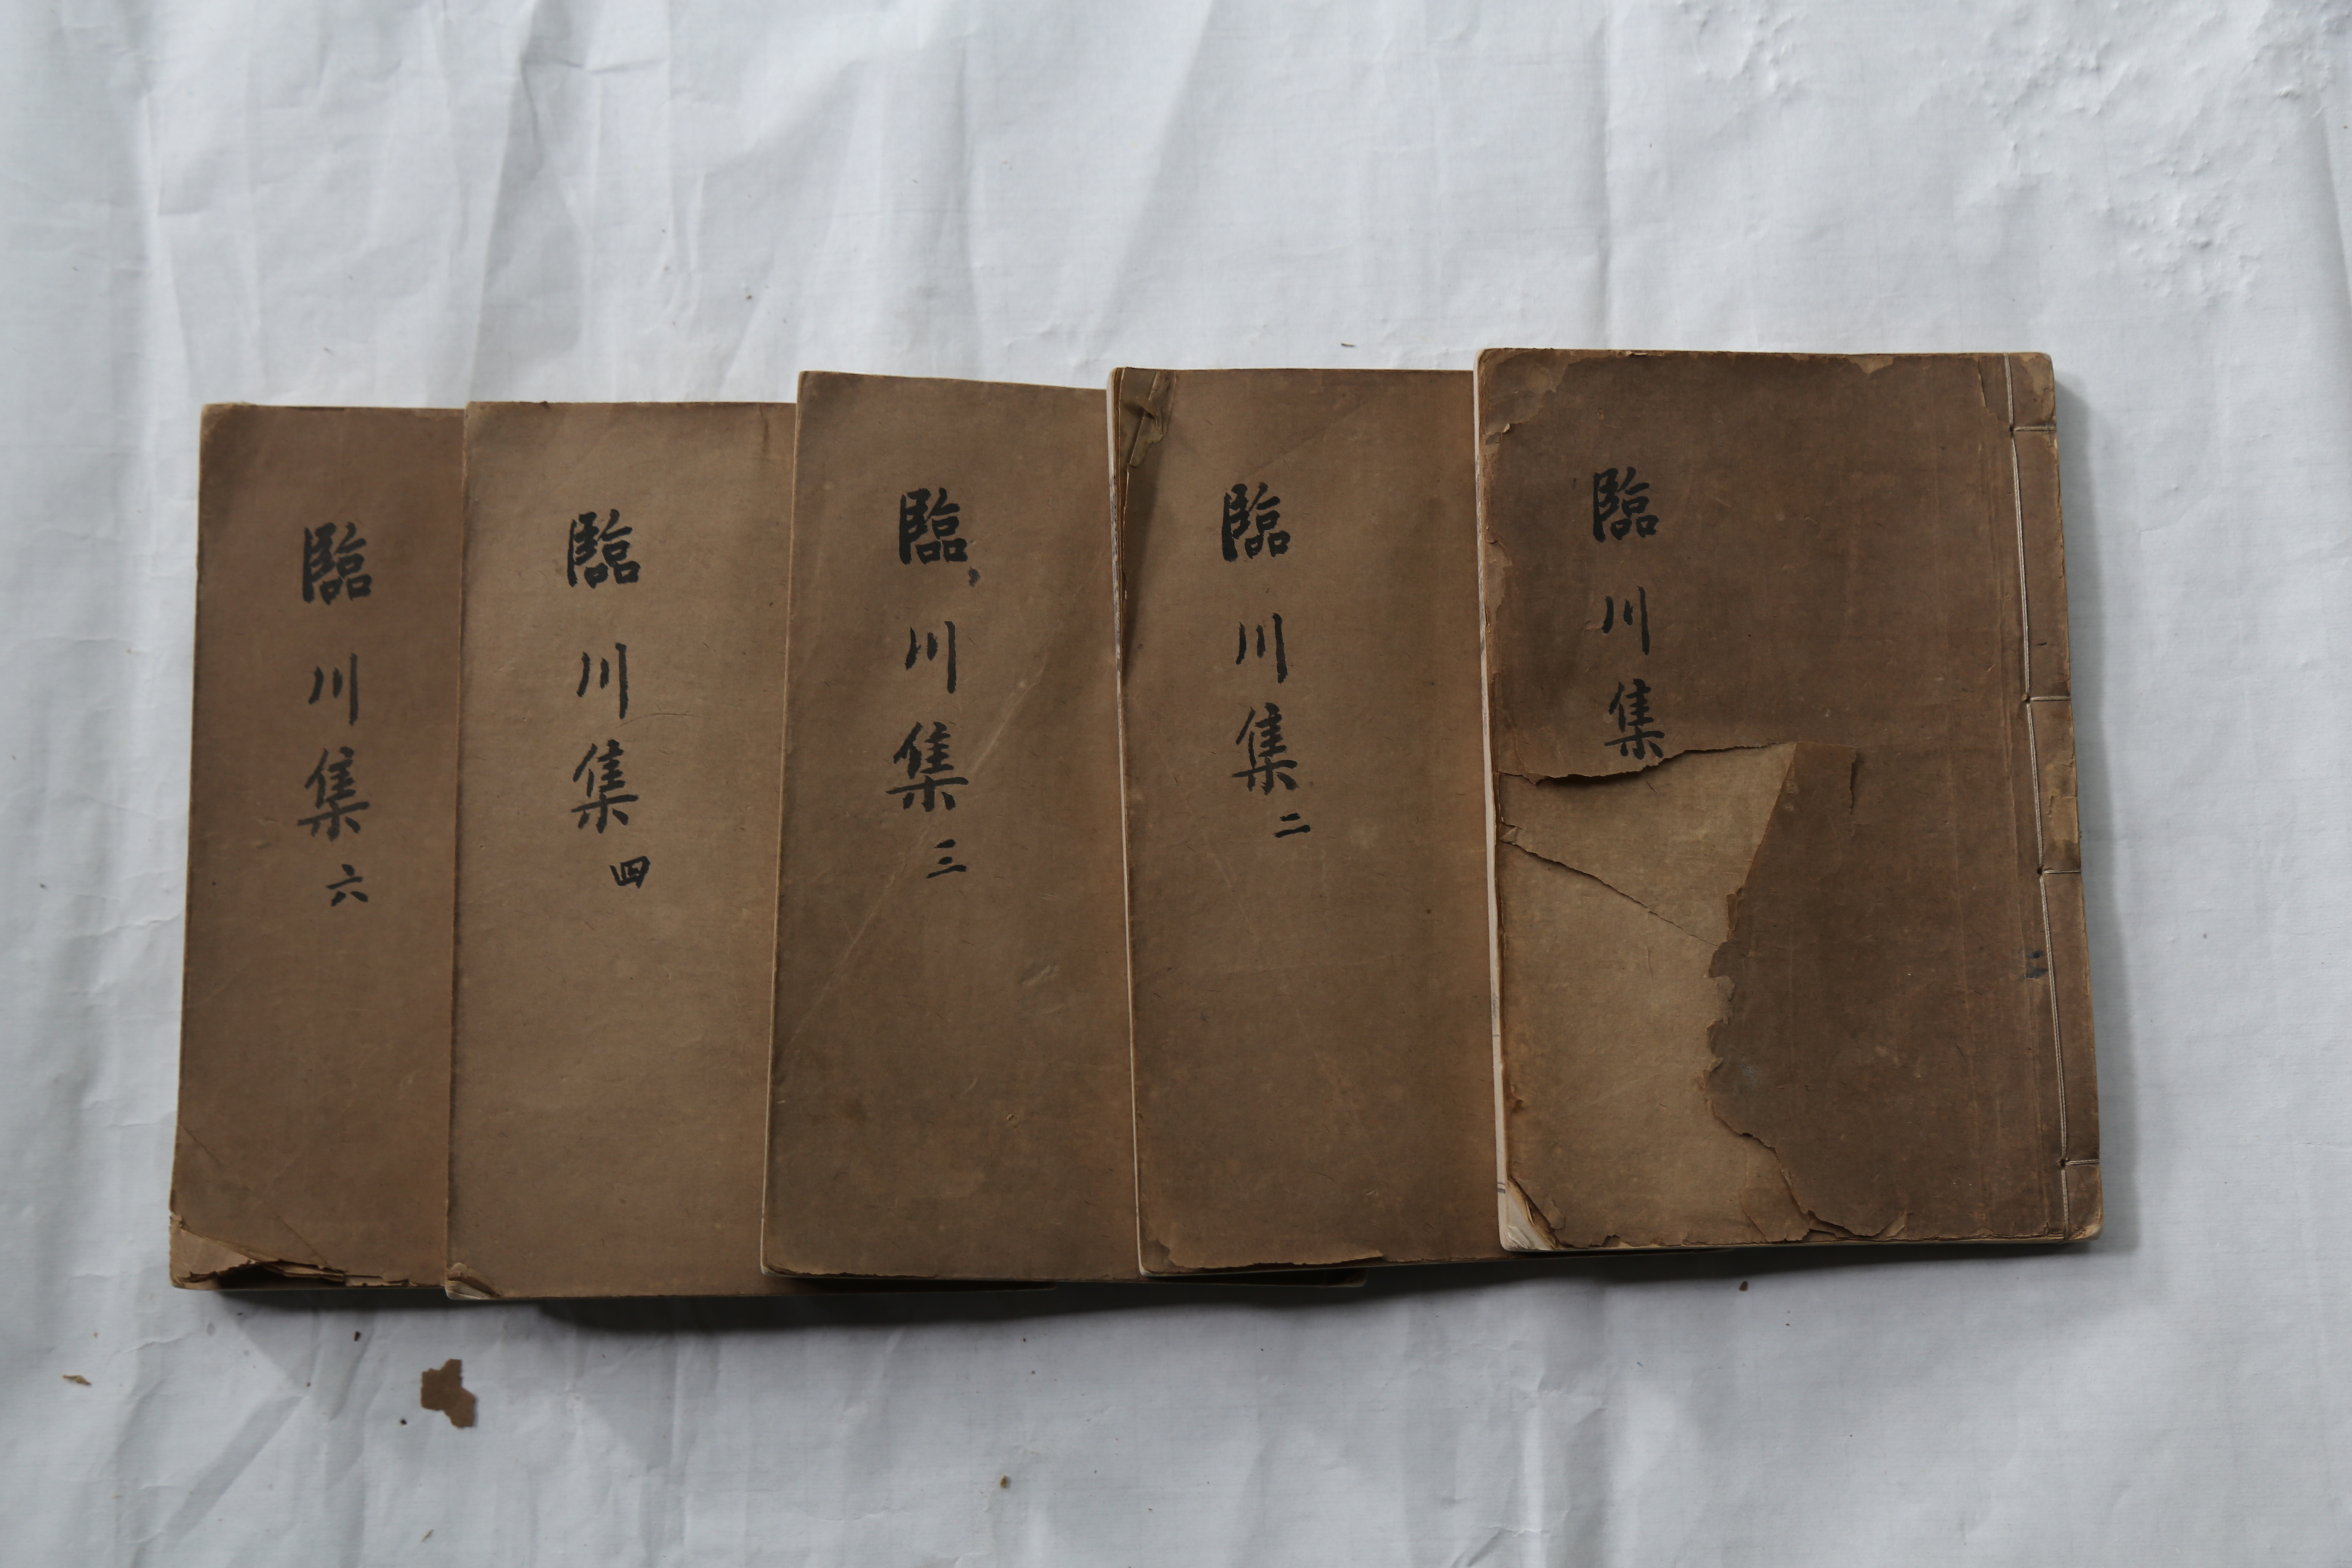 臨川集
臨川集二
臨川集三
臨川集四
臨川集六